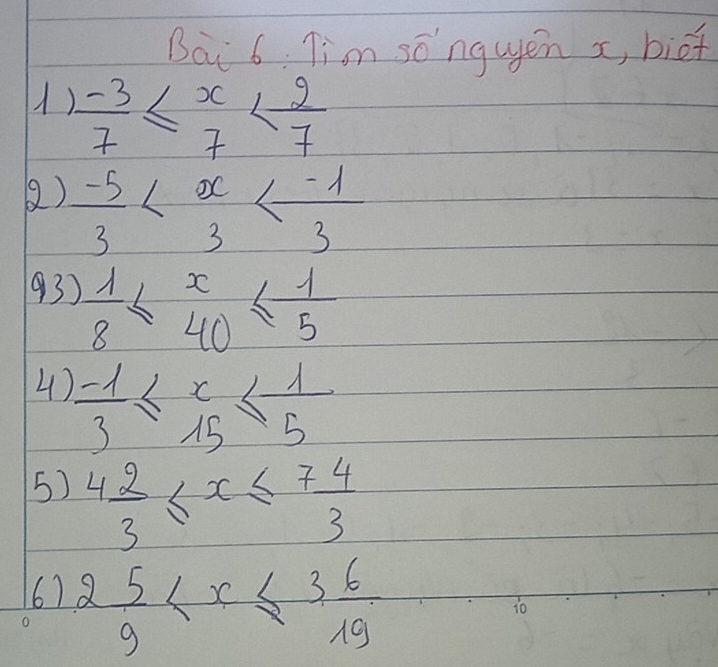 Bài 6: Tìm số nguyên x, biết
1) -3/7 ≤ x/7 < 2/7
2) -5/3 < x/3 < -1/3
3) 1/8 ≤ x/40 ≤ 1/5
4) -1/3 ≤ x/15 ≤ 1/5
5) 4 2/3 ≤ x ≤ 7 4/3
6) 2 5/9 < x ≤ 3 6/19
0 10